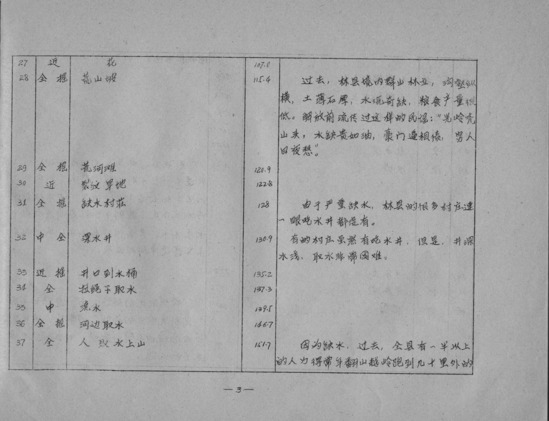 27 近 花
28 全 摇 荒山坡 115.4 过去，林县境内群山林立，沟壑纵
横，土薄石厚，水源奇缺，粮食产量很
低。解放前流传过这样的民谣：“光岭秃
山头，水缺贵如油，豪门逼租债，穷人
日夜愁”。
29 全 摇 荒河滩 120.9
30 近 裂纹旱地 122.8
31 全 摇 缺水村庄 128 由于严重缺水，林县的很多村庄连
一眼吃水井都没有。
32 中 全 深水井 130.9 有的村庄虽然有吃水井，但是，井深
水浅，取水非常困难。
33 近 摇 井口到水桶 135.2
34 全 拉绳子取水 137.3
35 中 煮水 139.5
36 全 摇 河边取水
37 全 人 水上山 因为缺水，过去，全县有一半以上
的人力得常年翻山越岭跑到几十里外的
— 3 —